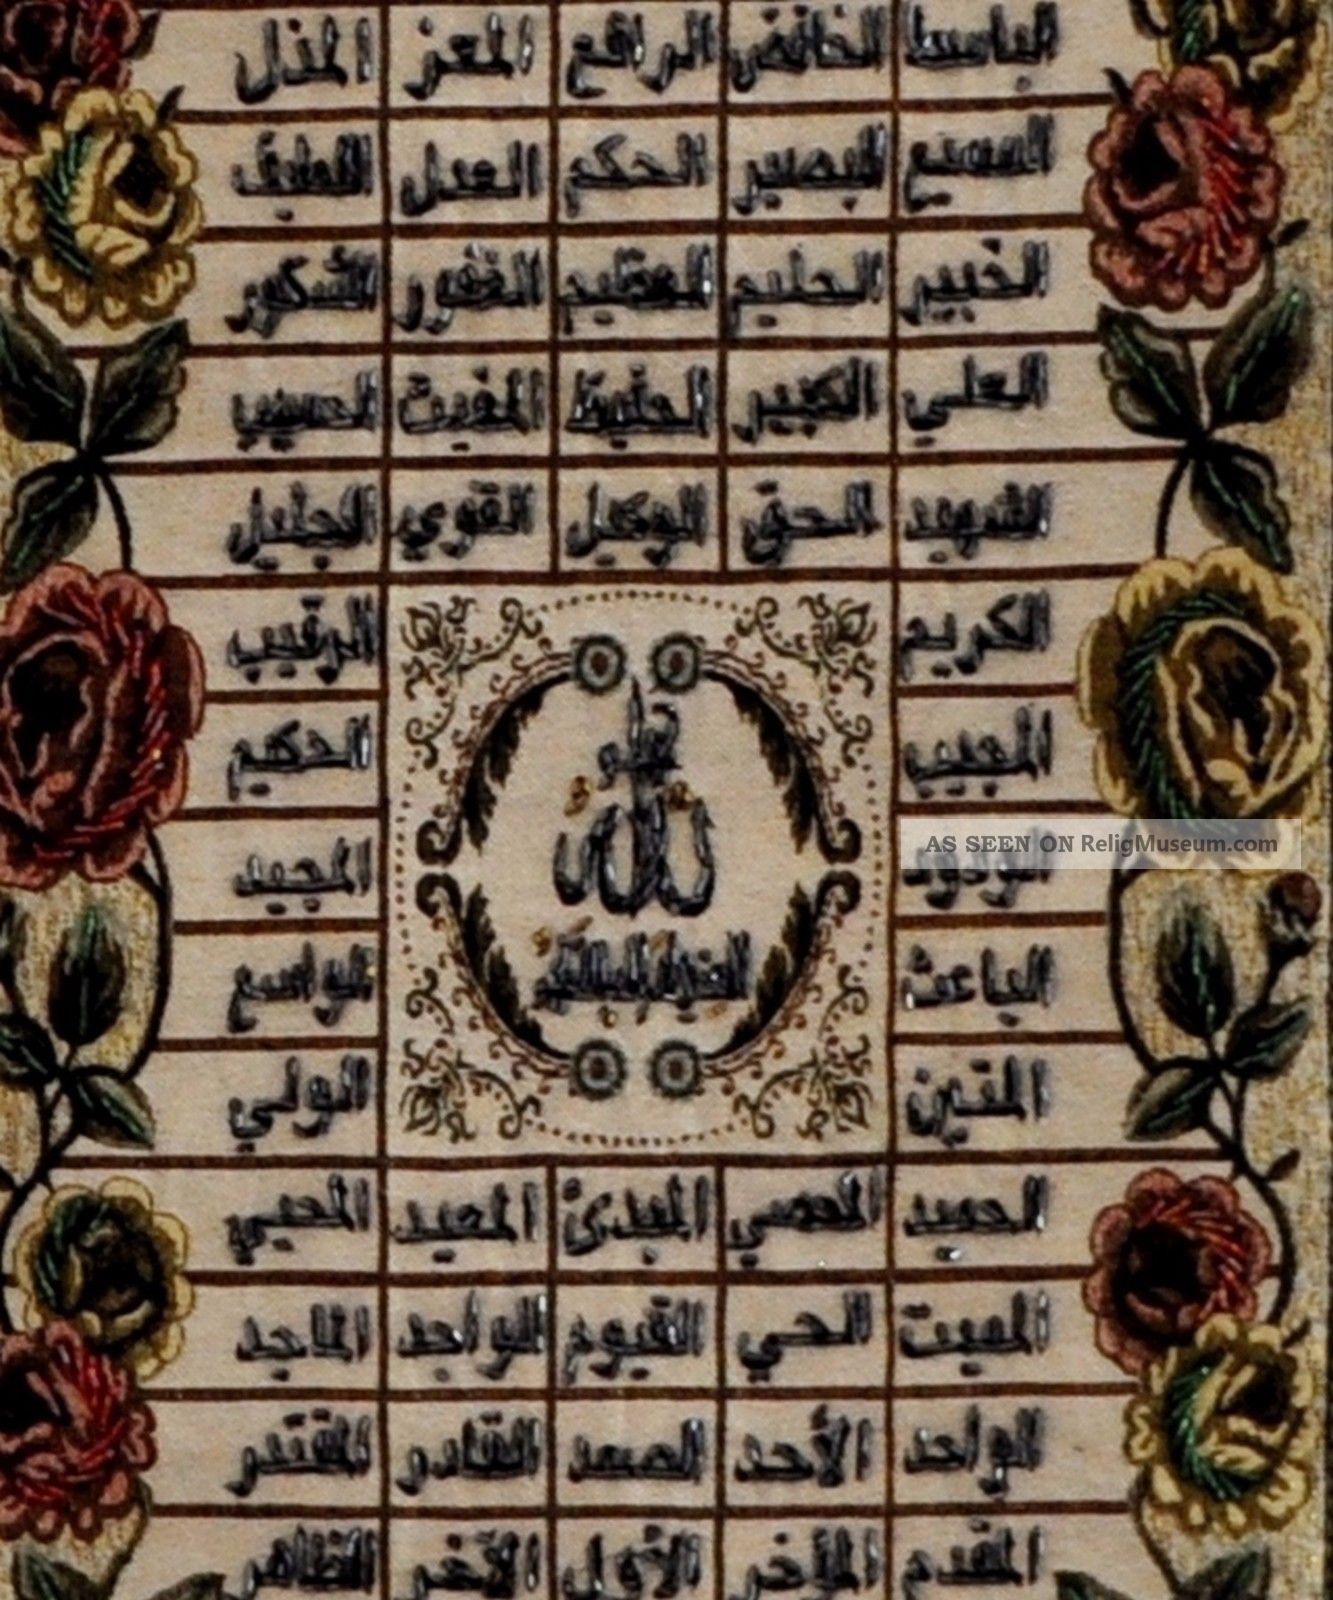 الباسط الخافض الرافع المعز المذل
السميع البصير الحكم العدل اللطيف
الخبير الحليم العظيم الغفور الشكور
العلي الكبير الحفيظ المغيث الحسيب
الشهيد الحق الوكيل القوي الجليل
الكريم الرقيب
المجيب الحكيم
AS SEEN ON ReligMuseum.com
الودود المجيد
الله
الباعث الواسع
المتين الولي
الحميد المحصي المبدئ المعيد المحيي
المميت الحي القيوم الواجد الماجد
الواحد الأحد الصمد القادر المقتدر
المقدم المؤخر الأول الآخر الظاهر